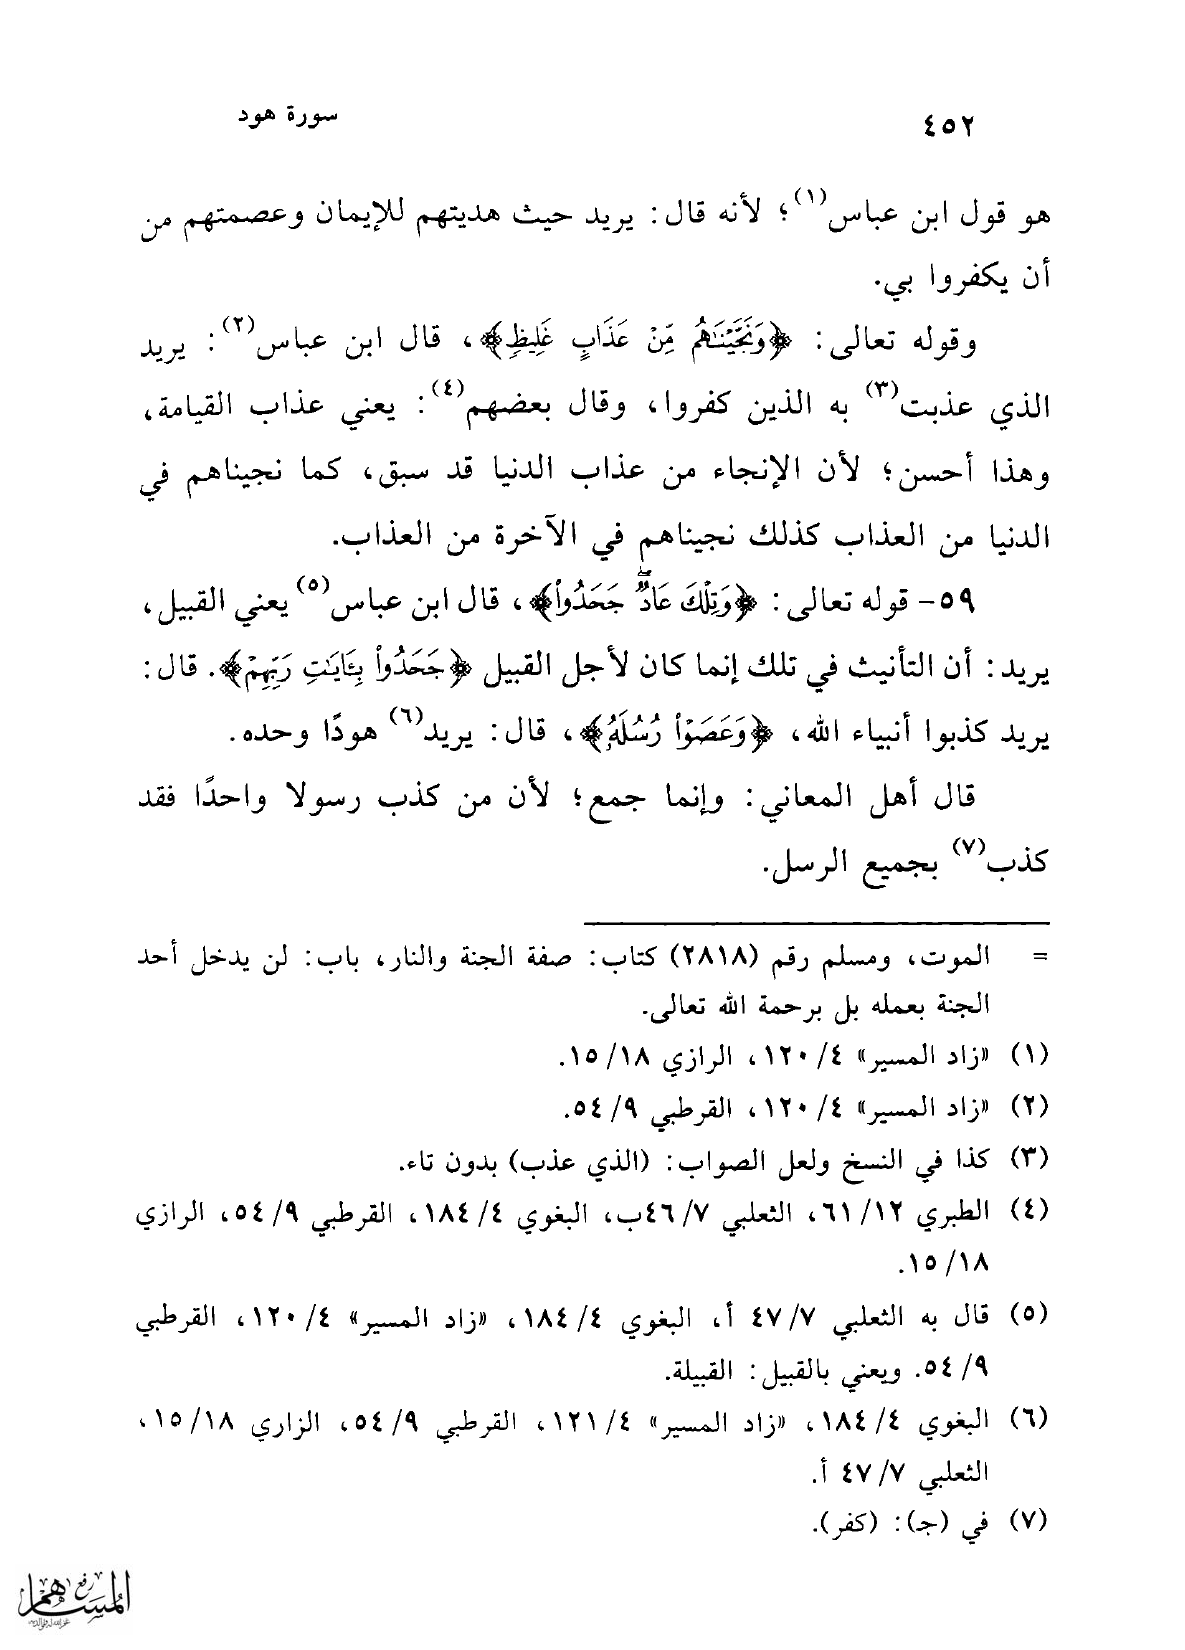 ٤٥٢
سورة هود
هو قول ابن عباس(١)؛ لأنه قال: يريد حيث هديتهم للإيمان وعصمتهم من
أن يكفروا بي.
وقوله تعالى: ﴿وَنَجَّيْنَاهُم مِّنْ عَذَابٍ غَلِيظٍ﴾، قال ابن عباس(٢): يريد
الذي عذبت(٣) به الذين كفروا، وقال بعضهم(٤): يعني عذاب القيامة،
وهذا أحسن؛ لأن الإنجاء من عذاب الدنيا قد سبق، كما نجيناهم في
الدنيا من العذاب كذلك نجيناهم في الآخرة من العذاب.
٥٩- قوله تعالى: ﴿وَتِلْكَ عَادٌ ۖ جَحَدُواْ﴾، قال ابن عباس(٥) يعني القبيل،
يريد: أن التأنيث في تلك إنما كان لأجل القبيل ﴿جَحَدُواْ بِـَٔايَٰتِ رَبِّهِمْ﴾. قال:
يريد كذبوا أنبياء الله، ﴿وَعَصَوْاْ رُسُلَهُۥ﴾، قال: يريد(٦) هودًا وحده.
قال أهل المعاني: وإنما جمع؛ لأن من كذب رسولا واحدًا فقد
كذب(٧) بجميع الرسل.
= الموت، ومسلم رقم (٢٨١٨) كتاب: صفة الجنة والنار، باب: لن يدخل أحد
الجنة بعمله بل برحمة الله تعالى.
(١) «زاد المسير» ٤/ ١٢٠، الرازي ١٨/ ١٥.
(٢) «زاد المسير» ٤/ ١٢٠، القرطبي ٩/ ٥٤.
(٣) كذا في النسخ ولعل الصواب: (الذي عذب) بدون تاء.
(٤) الطبري ١٢/ ٦١، الثعلبي ٧/ ٤٦ب، البغوي ٤/ ١٨٤، القرطبي ٩/ ٥٤، الرازي
١٨/ ١٥.
(٥) قال به الثعلبي ٧/ ٤٧ أ، البغوي ٤/ ١٨٤، «زاد المسير» ٤/ ١٢٠، القرطبي
٩/ ٥٤. ويعني بالقبيل: القبيلة.
(٦) البغوي ٤/ ١٨٤، «زاد المسير» ٤/ ١٢١، القرطبي ٩/ ٥٤، الزاري ١٨/ ١٥،
الثعلبي ٧/ ٤٧ أ.
(٧) في (جـ): (كفر).